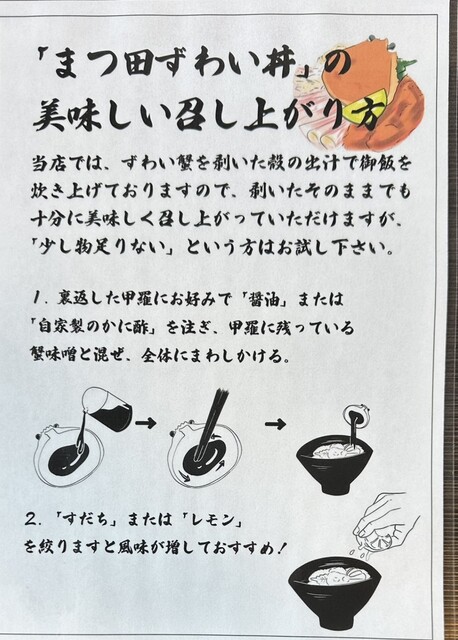 「まつ田ずわい丼」の
美味しい召し上がり方
当店では、ずわい蟹を剥いた殻の出汁で御飯を
炊き上げておりますので、剥いたそのままでも
十分に美味しく召し上がっていただけますが、
「少し物足りない」という方はお試し下さい。
1. 裏返した甲羅にお好みで「醤油」または
「自家製のかに酢」を注ぎ、甲羅に残っている
蟹味噌と混ぜ、全体にまわしかける。
2. 「すだち」または「レモン」
を絞りますと風味が増しておすすめ!